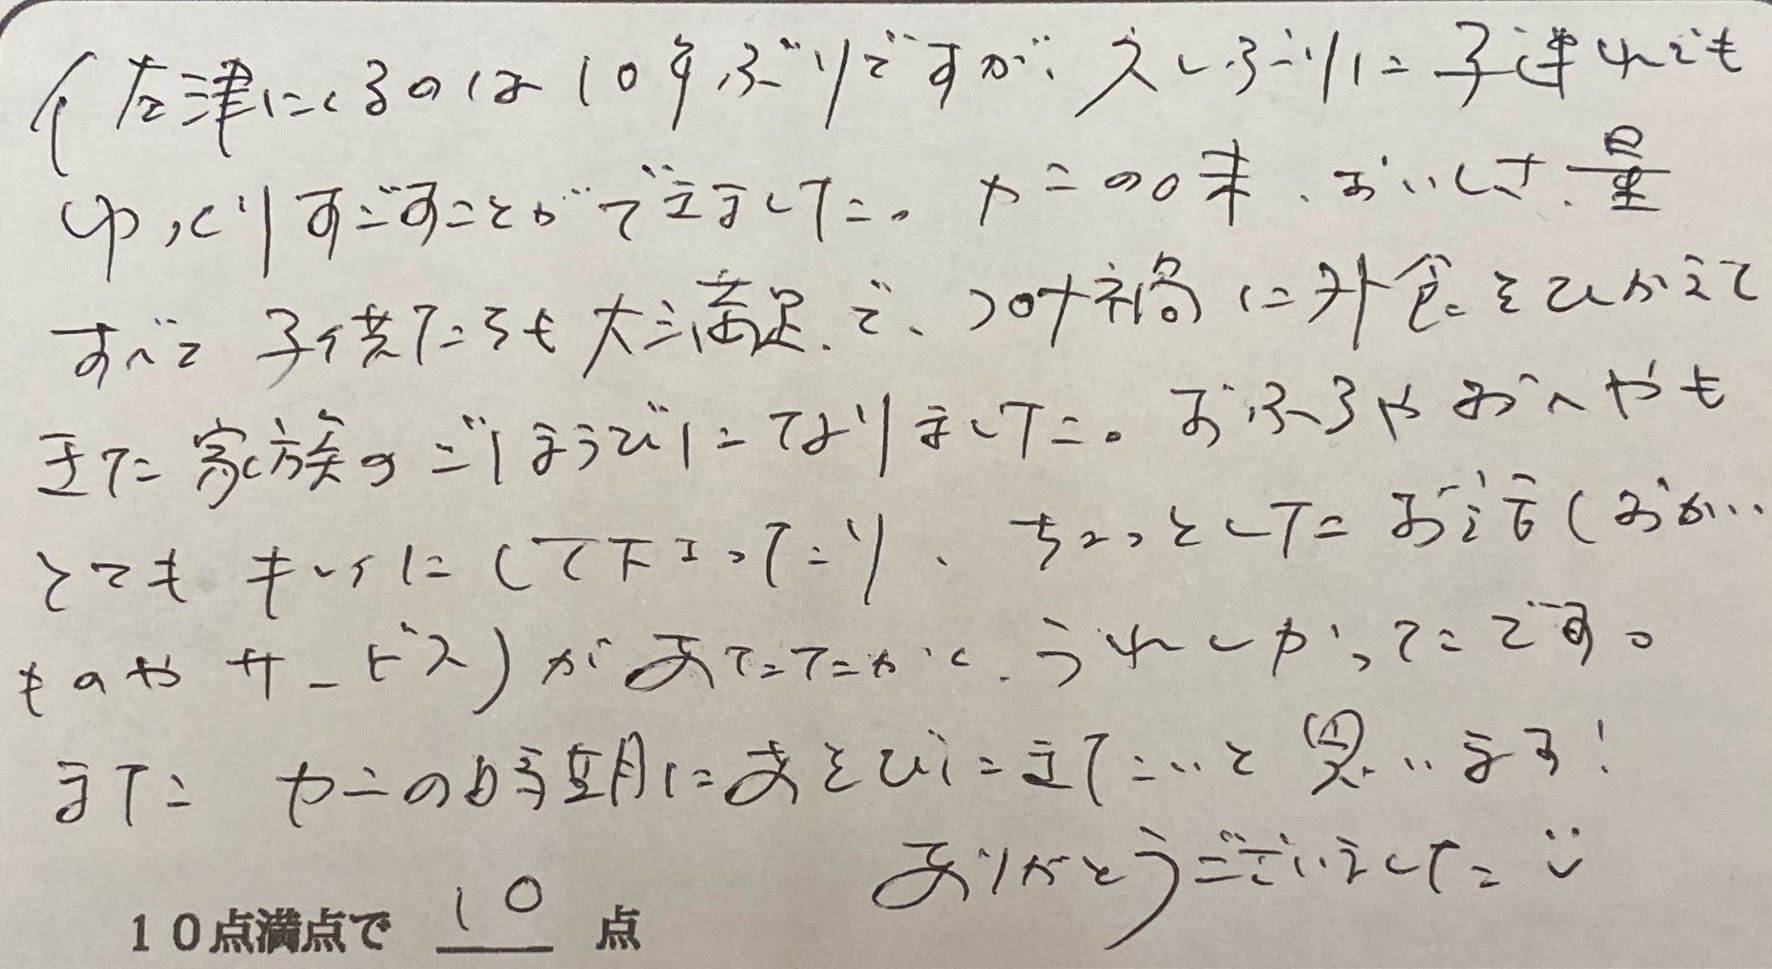 佐津にくるのは10年ぶりですが、久しぶりに子連れでも
ゆっくりすごすことができました。カニの味、おいしさ、量
すべて子供たちも大満足で、コロナ禍に外食をひかえて
きた家族のごほうびになりました。おふろやおへやも
とてもキレイにして下さってたり、ちょっとしたお話(おか
ものやサービス)があたたかく、うれしかったです。
またカニの時期にあそびにきたいと思います!
ありがとうございました
10点満点で 10 点